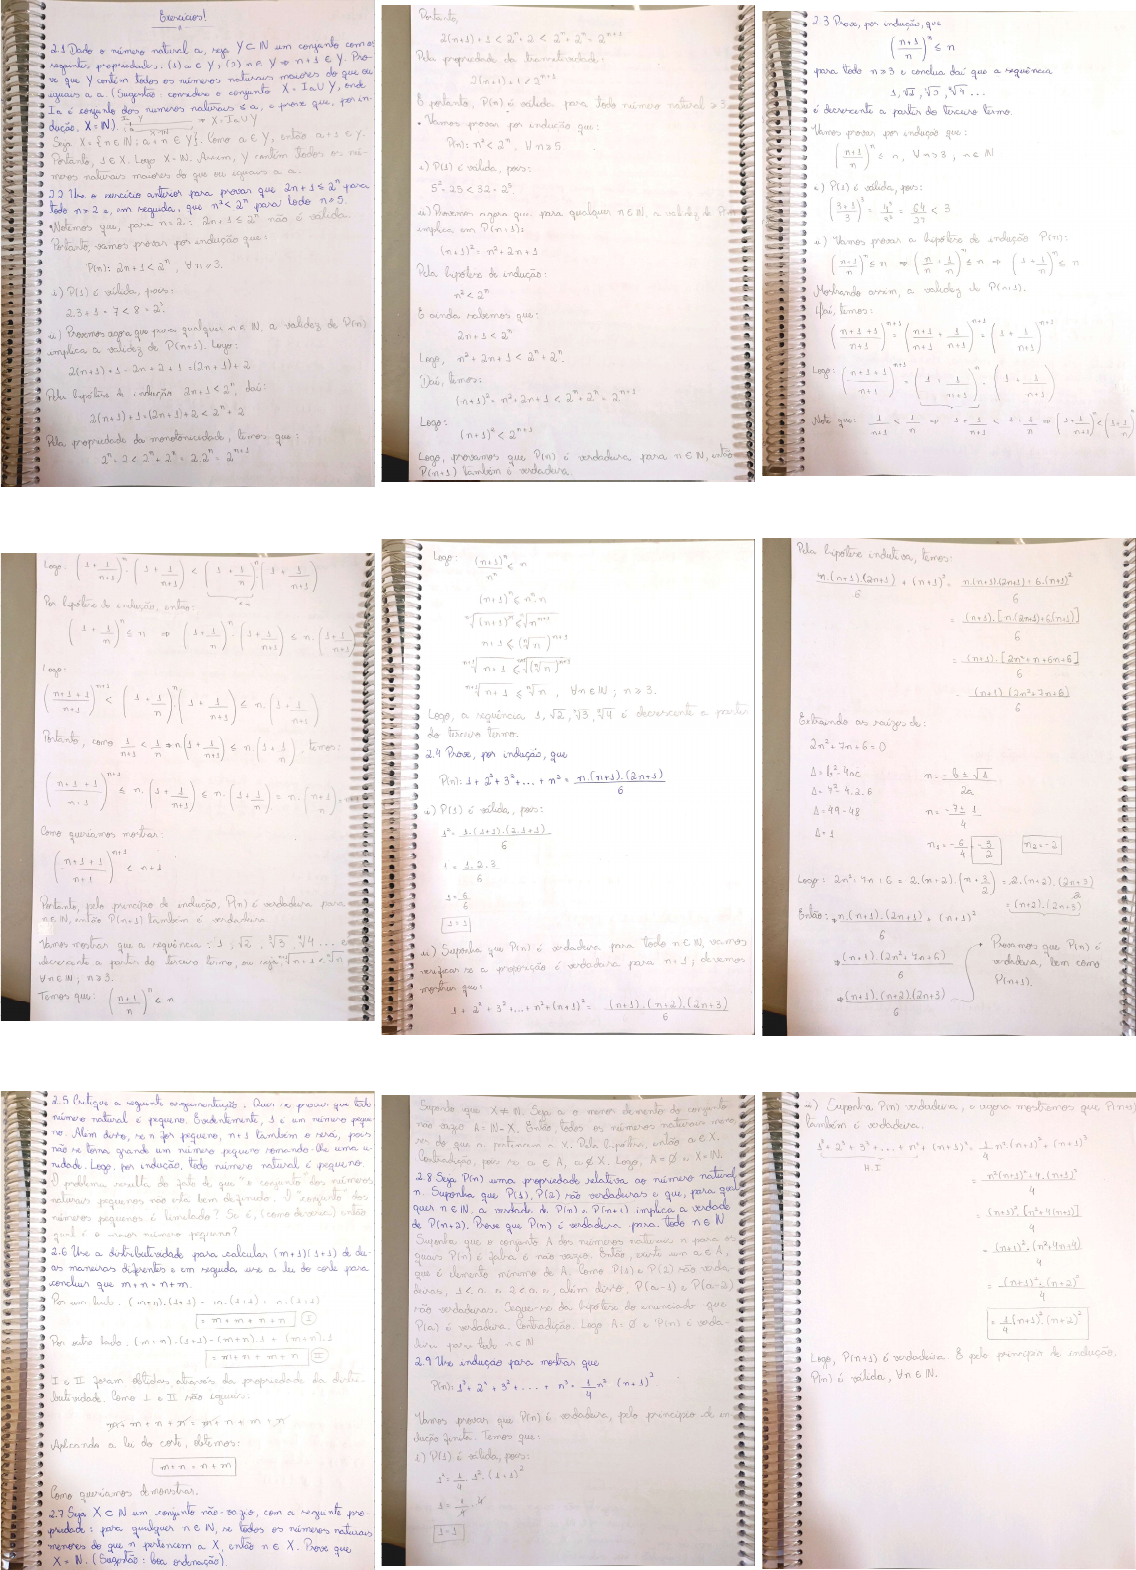 Exercícios!
2.1 Dado o número natural a, seja Y ⊂ ℕ um conjunto com as
seguintes propriedades: (1) a ∈ Y, (2) n ∈ Y ⇒ n+1 ∈ Y. Pro-
ve que Y contém todos os números naturais maiores do que ou
iguais a a. (Sugestão: considere o conjunto X = Ia ∪ Y, onde
Ia é conjunto dos números naturais ≤ a, e prove que, por in-
dução, X = ℕ). ⇒ X = Ia ∪ Y
Seja X = { n ∈ ℕ; a + n ∈ Y}. Como a ∈ Y, então a+1 ∈ Y.
Portanto, 1 ∈ X. Logo X = ℕ. Assim, Y contém todos os nú-
meros naturais maiores do que ou iguais a a.
2.2 Use o exercício anterior para provar que 2n+1 ≤ 2ⁿ para
todo n ≥ 2 e, em seguida, que n² < 2ⁿ para todo n ≥ 5.
• Notemos que, para n=2: 2n+1 ≤ 2ⁿ não é válida.
Portanto, vamos provar por indução que:
P(n): 2n+1 < 2ⁿ, ∀ n ≥ 3.
i) P(1) é válida, pois:
2.3+1 = 7 < 8 = 2³
ii) Provemos agora que para qualquer n ∈ ℕ, a validez de P(n)
implica a validez de P(n+1). Logo:
2(n+1)+1 = 2n+2+1 = (2n+1)+2
Pela hipótese de indução 2n+1 < 2ⁿ, daí:
2(n+1)+1 = (2n+1)+2 < 2ⁿ+2
Pela propriedade da monotonicidade, temos que:
2ⁿ+2 < 2ⁿ+2ⁿ = 2.2ⁿ = 2ⁿ⁺¹
Portanto,
2(n+1)+1 < 2ⁿ+2 < 2ⁿ+2ⁿ = 2ⁿ⁺¹
Pela propriedade da transitividade:
2(n+1)+1 < 2ⁿ⁺¹
E portanto, P(n) é válida para todo número natural ≥ 3.
• Vamos provar por indução que:
P(n): n² < 2ⁿ, ∀ n ≥ 5
i) P(1) é válida, pois:
5² = 25 < 32 = 2⁵
ii) Provemos agora que para qualquer n ∈ ℕ, a validez de P(n)
implica em P(n+1):
(n+1)² = n²+2n+1
Pela hipótese de indução:
n² < 2ⁿ
E ainda sabemos que:
2n+1 < 2ⁿ
Logo, n²+2n+1 < 2ⁿ+2ⁿ.
Daí, temos:
(n+1)² = n²+2n+1 < 2ⁿ+2ⁿ = 2ⁿ⁺¹
Logo:
(n+1)² < 2ⁿ⁺¹
Logo, provamos que P(n) é verdadeira para n ∈ ℕ, então
P(n+1) também é verdadeira.
2.3 Prove, por indução, que
((n+1)/n)ⁿ ≤ n
para todo n ≥ 3 e conclua daí que a sequência
1, √2, ∛3, ∜4 ...
é decrescente a partir do terceiro termo.
Vamos provar por indução que:
((n+1)/n)ⁿ ≤ n, ∀ n ≥ 3, n ∈ ℕ
i) P(1) é válida, pois:
((3+1)/3)³ = 4³/3³ = 64/27 < 3
ii) Vamos provar a hipótese de indução P(n):
((n+1)/n)ⁿ ≤ n ⇒ (n/n + 1/n)ⁿ ≤ n ⇒ (1 + 1/n)ⁿ ≤ n
Mostrando assim, a validez de P(n+1).
Daí, temos:
((n+1+1)/(n+1))ⁿ⁺¹ = ((n+1)/(n+1) + 1/(n+1))ⁿ⁺¹ = (1 + 1/(n+1))ⁿ⁺¹
Logo: ((n+1+1)/(n+1))ⁿ⁺¹ = (1 + 1/(n+1))ⁿ · (1 + 1/(n+1))
Note que: 1/(n+1) < 1/n ⇒ 1 + 1/(n+1) < 1 + 1/n ⇒ (1 + 1/(n+1))ⁿ < (1 + 1/n)ⁿ
Logo: (1 + 1/(n+1))ⁿ · (1 + 1/(n+1)) < (1 + 1/n)ⁿ · (1 + 1/(n+1))
Por hipótese de indução, então:
(1 + 1/n)ⁿ ≤ n ⇒ (1 + 1/n)ⁿ · (1 + 1/(n+1)) ≤ n · (1 + 1/(n+1))
Logo:
((n+1+1)/(n+1))ⁿ⁺¹ < (1 + 1/n)ⁿ · (1 + 1/(n+1)) ≤ n · (1 + 1/(n+1))
Portanto, como 1/(n+1) < 1/n ⇒ n(1 + 1/(n+1)) ≤ n(1 + 1/n), temos:
((n+1+1)/(n+1))ⁿ⁺¹ ≤ n · (1 + 1/(n+1)) ≤ n · (1 + 1/n) = n · ((n+1)/n) = n+1
Como queríamos mostrar:
((n+1+1)/(n+1))ⁿ⁺¹ < n+1
Portanto, pelo princípio de indução, P(n) é verdadeira para
n ∈ ℕ, então P(n+1) também é verdadeira.
Vamos mostrar que a sequência: 1, √2, ∛3, ∜4 ... é
decrescente a partir do terceiro termo, ou seja, ⁿ⁺¹√(n+1) < ⁿ√n
∀ n ∈ ℕ; n ≥ 3.
Temos que: ((n+1)/n)ⁿ ≤ n
Logo: (n+1)ⁿ/nⁿ ≤ n
(n+1)ⁿ ≤ nⁿ·n
ⁿ√(n+1)ⁿ ≤ ⁿ√nⁿ⁺¹
n+1 ≤ (ⁿ√n)ⁿ⁺¹
ⁿ⁺¹√(n+1) ≤ ⁿ⁺¹√((ⁿ√n)ⁿ⁺¹)
ⁿ⁺¹√(n+1) ≤ ⁿ√n, ∀ n ∈ ℕ; n ≥ 3.
Logo, a sequência 1, √2, ∛3, ∜4 é decrescente a partir
do terceiro termo.
2.4 Prove, por indução, que
P(n): 1 + 2² + 3² + ... + n² = n.(n+1).(2n+1)/6
i) P(1) é válida, pois:
1² = 1.(1+1).(2.1+1)/6
1 = 1.2.3/6
1 = 6/6
1 = 1
ii) Suponha que P(n) é verdadeira para todo n ∈ ℕ, vamos
verificar se a proposição é verdadeira para n+1; devemos
mostrar que:
1 + 2² + 3² + ... + n² + (n+1)² = (n+1).(n+2).(2n+3)/6
Pela hipótese indutiva, temos:
n.(n+1).(2n+1)/6 + (n+1)² = n.(n+1).(2n+1) + 6.(n+1)²/6
= (n+1).[n.(2n+1)+6(n+1)]/6
= (n+1).[2n²+n+6n+6]/6
= (n+1).(2n²+7n+6)/6
Extraindo as raízes de:
2n²+7n+6 = 0
Δ = b² - 4ac n = -b ± √Δ/2a
Δ = 7² - 4.2.6
Δ = 49 - 48 n = -7 ± 1/4
Δ = 1
n₁ = -6/4 = -3/2 n₂ = -2
Logo: 2n²+7n+6 = 2.(n+2).(n+3/2) = 2.(n+2).(2n+3)/2
= (n+2).(2n+3)
Então: n.(n+1).(2n+1)/6 + (n+1)²
⇒ (n+1).(2n²+7n+6)/6
⇒ (n+1).(n+2).(2n+3)/6
Provamos que P(n) é
verdadeira, bem como
P(n+1).
2.5 Critique a seguinte argumentação. Quer-se provar que todo
número natural é pequeno. Evidentemente, 1 é um número peque-
no. Além disso, se n for pequeno, n+1 também o será, pois
não se torna grande um número pequeno somando-lhe uma u-
nidade. Logo, por indução, todo número natural é pequeno.
O problema resulta do fato de que "o conjunto dos números
naturais pequenos não está bem definido. O "conjunto" dos
números pequenos é limitado? Se é, (como deveria) então
qual é o maior número pequeno?
2.6 Use a distributividade para calcular (m+n)(1+1) de du-
as maneiras diferentes e em seguida, use a lei do corte para
concluir que m+n = n+m.
Por um lado: (m+n).(1+1) = m.(1+1) + n.(1+1)
= m+m+n+n I
Por outro lado: (m+n).(1+1) = (m+n).1 + (m+n).1
= m+n+m+n II
I e II foram obtidas através da propriedade da distri-
butividade. Como I e II são iguais:
m+m+n+n = m+n+m+n
Aplicando a lei do corte, obtemos:
m+n = n+m
Como queríamos demonstrar.
2.7 Seja X ⊂ ℕ um conjunto não-vazio, com a seguinte pro-
priedade: para qualquer n ∈ ℕ, se todos os números naturais
menores do que n pertencem a X, então n ∈ X. Prove que
X = ℕ. (Sugestão: boa ordenação).
Suponha que X ≠ ℕ. Seja a o menor elemento do conjunto
não vazio A = ℕ - X. Então, todos os números naturais meno-
res do que a pertencem a X. Pela hipótese, então a ∈ X.
Contradição, pois se a ∈ A, a ∉ X. Logo, A = ∅ e X = ℕ.
2.8 Seja P(n) uma propriedade relativa ao número natural
n. Suponha que P(1), P(2) são verdadeiras e que, para qual-
quer n ∈ ℕ, a verdade de P(n) e P(n+1) implica a verdade
de P(n+2). Prove que P(n) é verdadeira para todo n ∈ ℕ
Suponha que o conjunto A dos números naturais n para os
quais P(n) é falsa é não vazio. Então, existe um a ∈ A,
que é elemento mínimo de A. Como P(1) e P(2) são verda-
deiras, 1 < a e 2 < a e, além disso, P(a-1) e P(a-2)
são verdadeiras. Segue-se da hipótese do enunciado que
P(a) é verdadeira. Contradição. Logo A = ∅ e P(n) é verda-
deira para todo n ∈ ℕ
2.9 Use indução para mostrar que
P(n): 1³ + 2³ + 3³ + ... + n³ = 1/4 n² (n+1)²
Vamos provar que P(n) é verdadeira, pelo princípio de in-
dução finita. Temos que:
i) P(1) é válida, pois:
1³ = 1/4 . 1² . (1+1)²
1 = 1/4 . 4
1 = 1
ii) Suponha P(n) verdadeira, e agora mostremos que P(n+1)
também é verdadeira.
1³ + 2³ + 3³ + ... + n³ + (n+1)³ = 1/4 n².(n+1)² + (n+1)³
H.I
= n²(n+1)² + 4.(n+1)³/4
= (n+1)².[n²+4(n+1)]/4
= (n+1)².(n²+4n+4)/4
= (n+1)².(n+2)²/4
= 1/4 (n+1)².(n+2)²
Logo, P(n+1) é verdadeira. E pelo princípio de indução,
P(n) é válida, ∀ n ∈ ℕ.